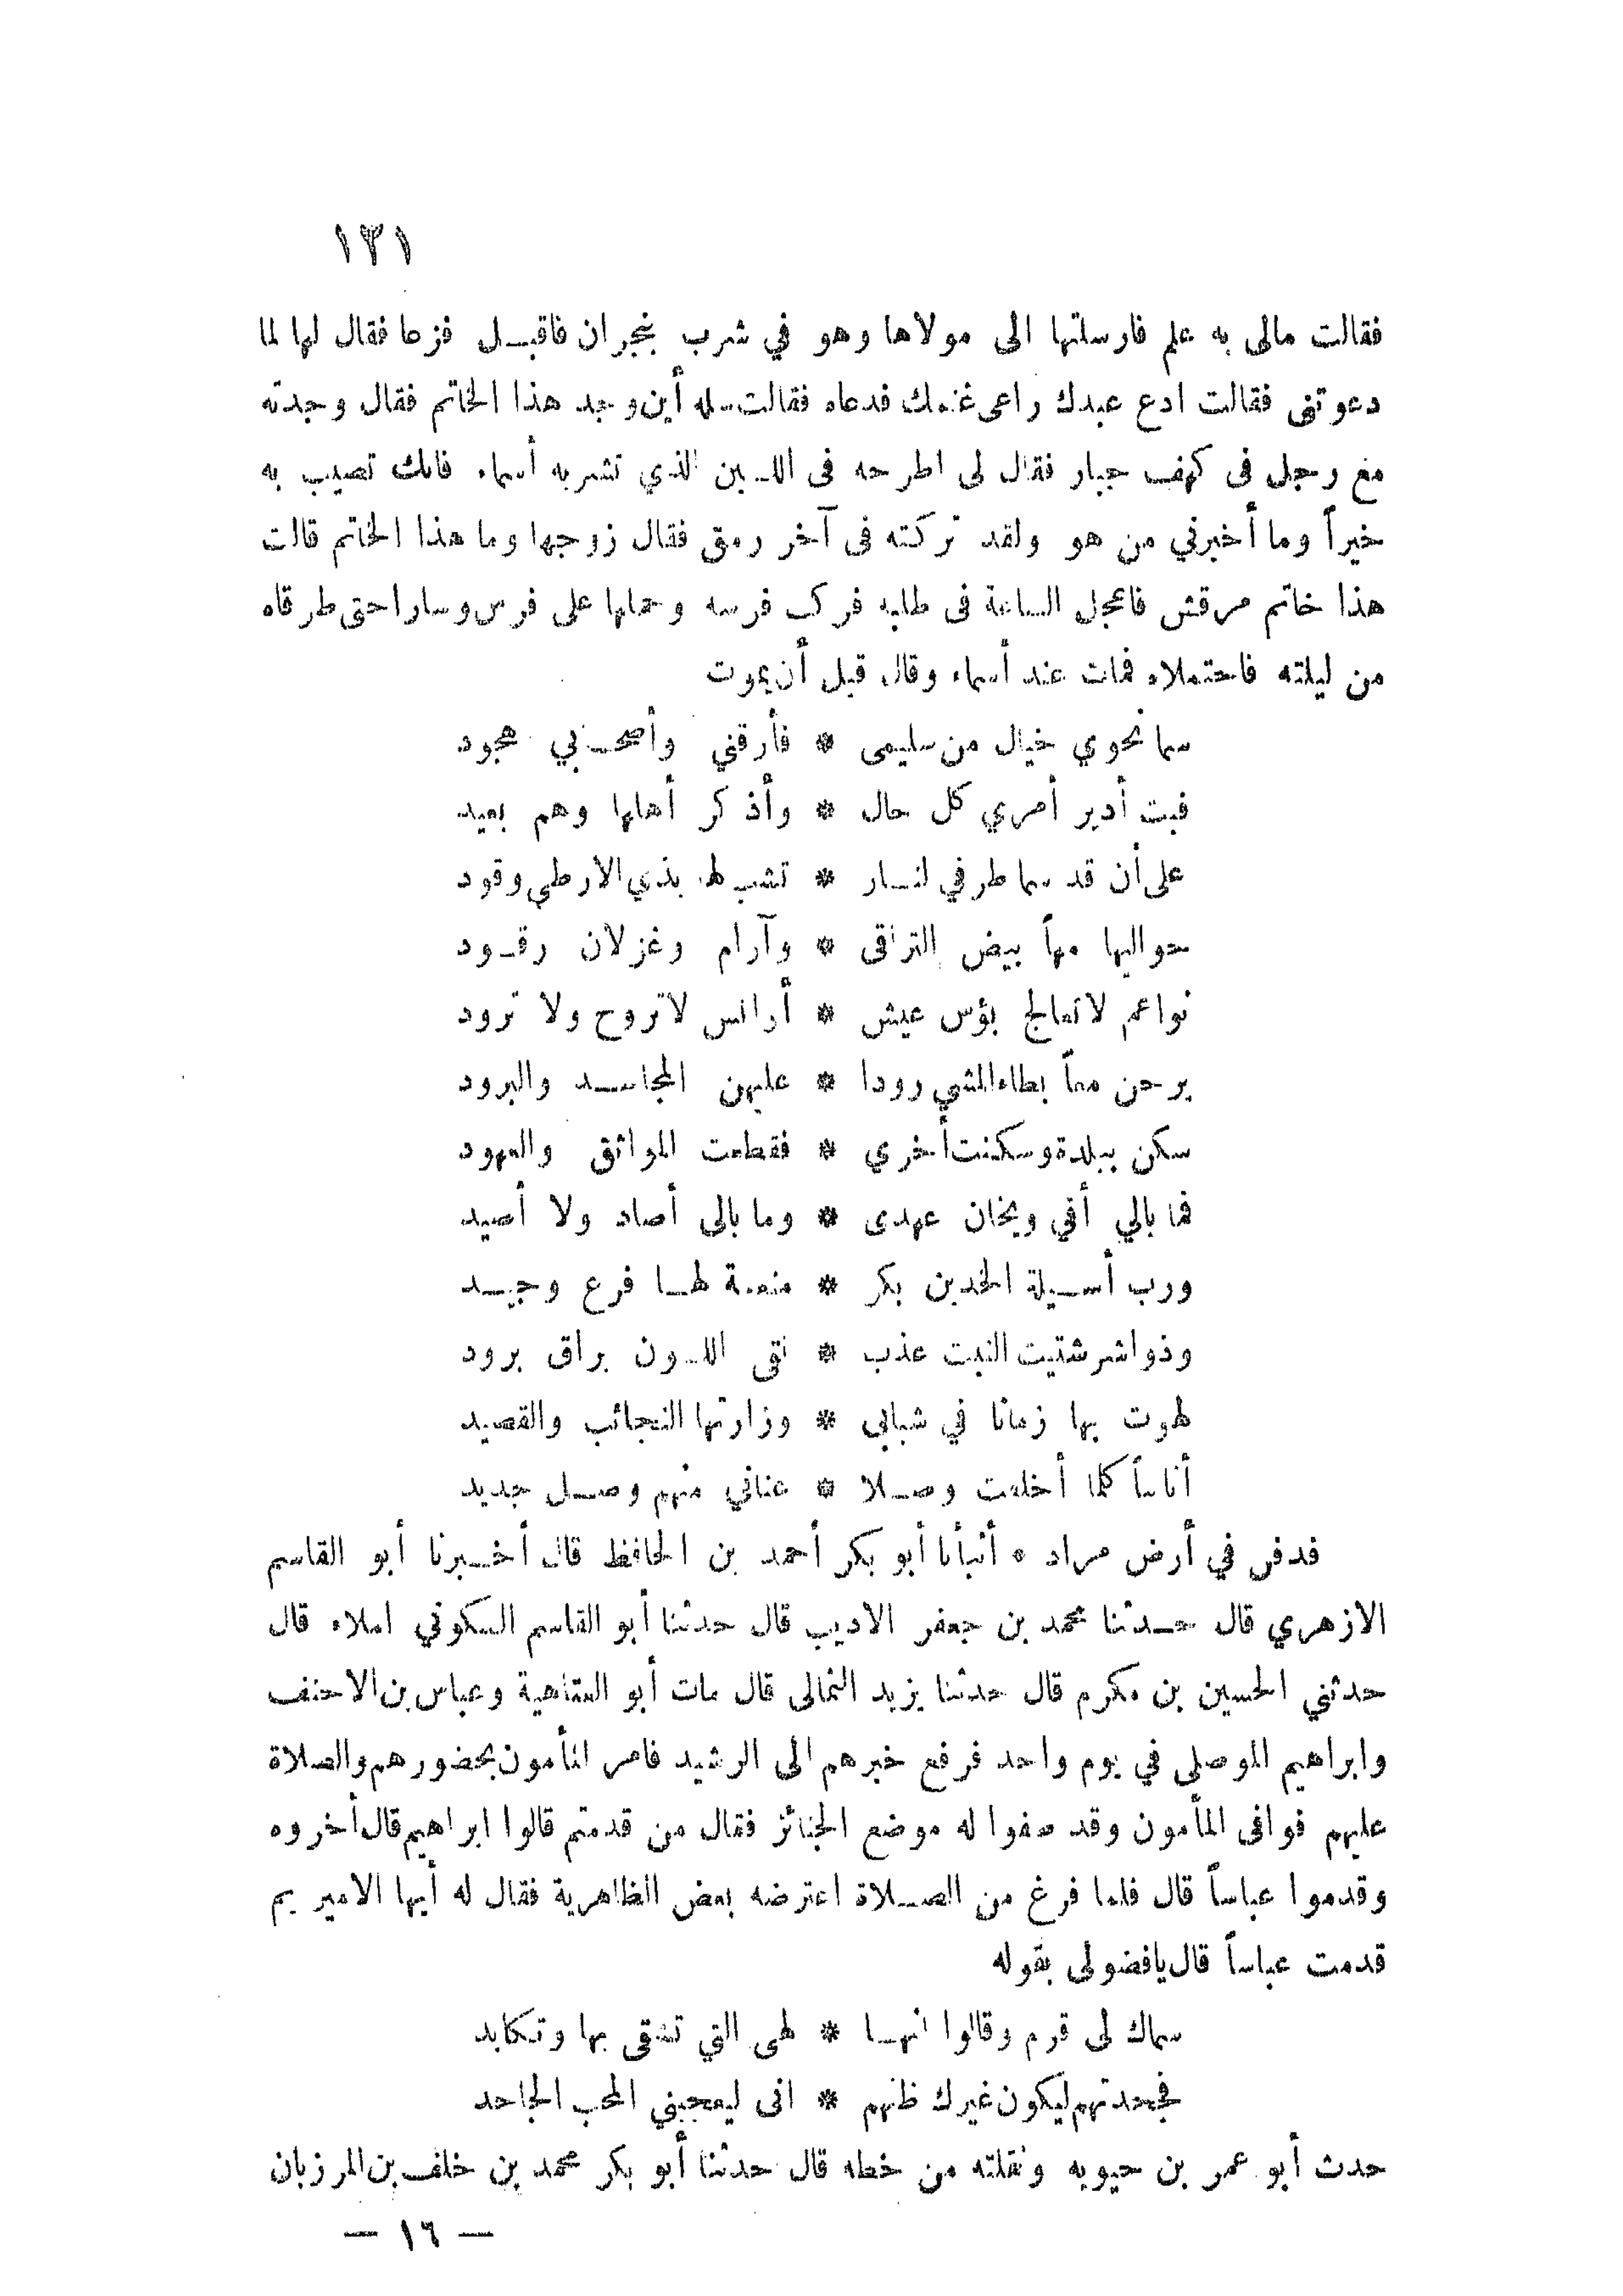 ١٢١
فقالت مالى به علم فارسلتها الى مولاها وهو في شرب بنجران فاقبل فزعا فقال لها لما
دعوتنى فقالت ادع عبدك راعى غنمك فدعاه فقالت سله أين وجد هذا الخاتم فقال وجدته
مع رجل فى كهف جبار فقال لى اطرحه فى اللبن الذي تشربه أسماء فانك تصيب به
خيراً وما أخبرني من هو ولقد تركته فى آخر رمق فقال زوجها وما هذا الخاتم قالت
هذا خاتم مرقش فاعجل الساعة فى طلبه فركب فرسه وحملها على فرس وسارا حتى طرقاه
من ليلته فاحتملاه فمات عند أسماء وقال قبل أن يموت
سما نحوي خيال من سليمى * فأرقني وأصحابي هجود
فبت أدير أمري كل حال * وأذكر أهلها وهم بعيد
على أن قد سما طرفي لنار * تشب لها بذي الارطى وقود
حواليها مهاً بيض التراقى * وآرام وغزلان رقود
نواعم لا تعالج بؤس عيش * أوانس لاتروح ولا ترود
يرحن معاً بطاء المشي رودا * عليهن المجاسد والبرود
سكن ببلدة وسكنت أخري * فقطعت المواثق والعهود
فما بالي أفي ويخان عهدى * وما بالى أصاد ولا أصيد
ورب أسيلة الخدين بكر * منعمة لها فرع وجيد
وذو اشر شتيت النبت عذب * نقى اللون براق برود
لهوت بها زمانا في شبابى * وزارتها النجائب والقصيد
أناساً كلما أخلقت وصلا * عناني منهم وصل جديد
فدفن في أرض مراد * أنبأنا أبو بكر أحمد بن الحافظ قال أخبرنا أبو القاسم
الازهري قال حدثنا محمد بن جعفر الاديب قال حدثنا أبو القاسم السكوني املاء قال
حدثني الحسين بن مكرم قال حدثنا يزيد الثمالى قال مات أبو العتاهية وعباس بن الاحنف
وابراهيم الموصلى في يوم واحد فرفع خبرهم الى الرشيد فامر المأمون بحضورهم والصلاة
عليهم فوافى المأمون وقد صفوا له موضع الجنائز فقال من قدمتم قالوا ابراهيم قال أخروه
وقدموا عباساً قال فلما فرغ من الصلاة اعترضه بعض الظاهرية فقال له أيها الامير بم
قدمت عباساً قال يافضولى بقوله
سماك لى قوم وقالوا انها * لهى التي تشقى بها وتكابد
فجحدتهم ليكون غيرك ظنهم * انى ليعجبني المحب الجاحد
حدث أبو عمر بن حيويه ونقلته من خطه قال حدثنا أبو بكر محمد بن خلف بن المرزبان
— ١٦ —